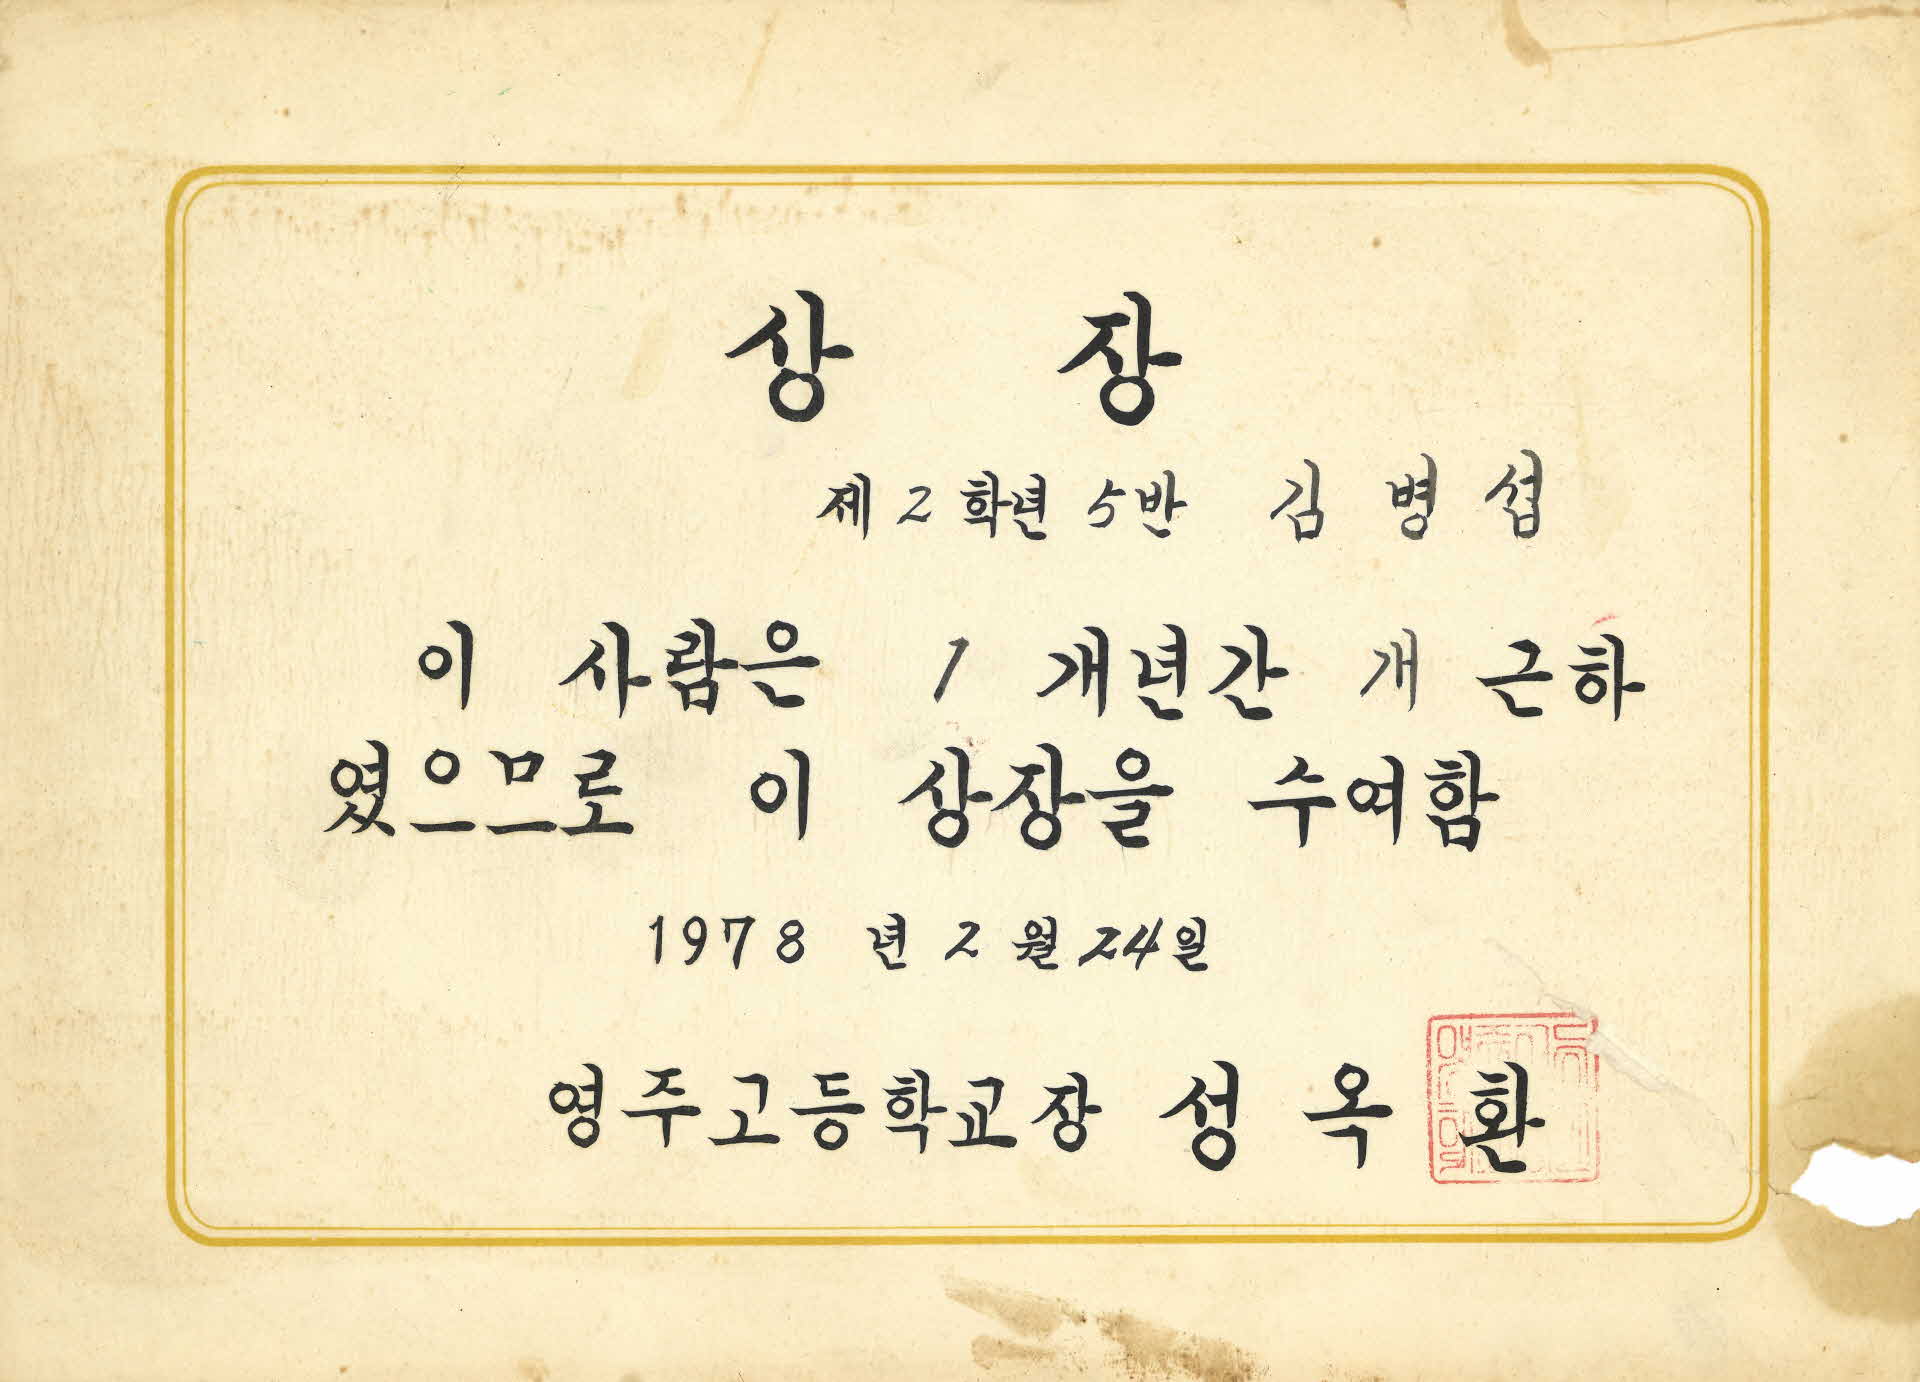 상 장
제 2 학년 5 반 김 병 섭
이 사람은 1 개년간 개 근하
였으므로 이 상장을 수여함
1978 년 2 월 24 일
영주고등학교장 성 옥 환